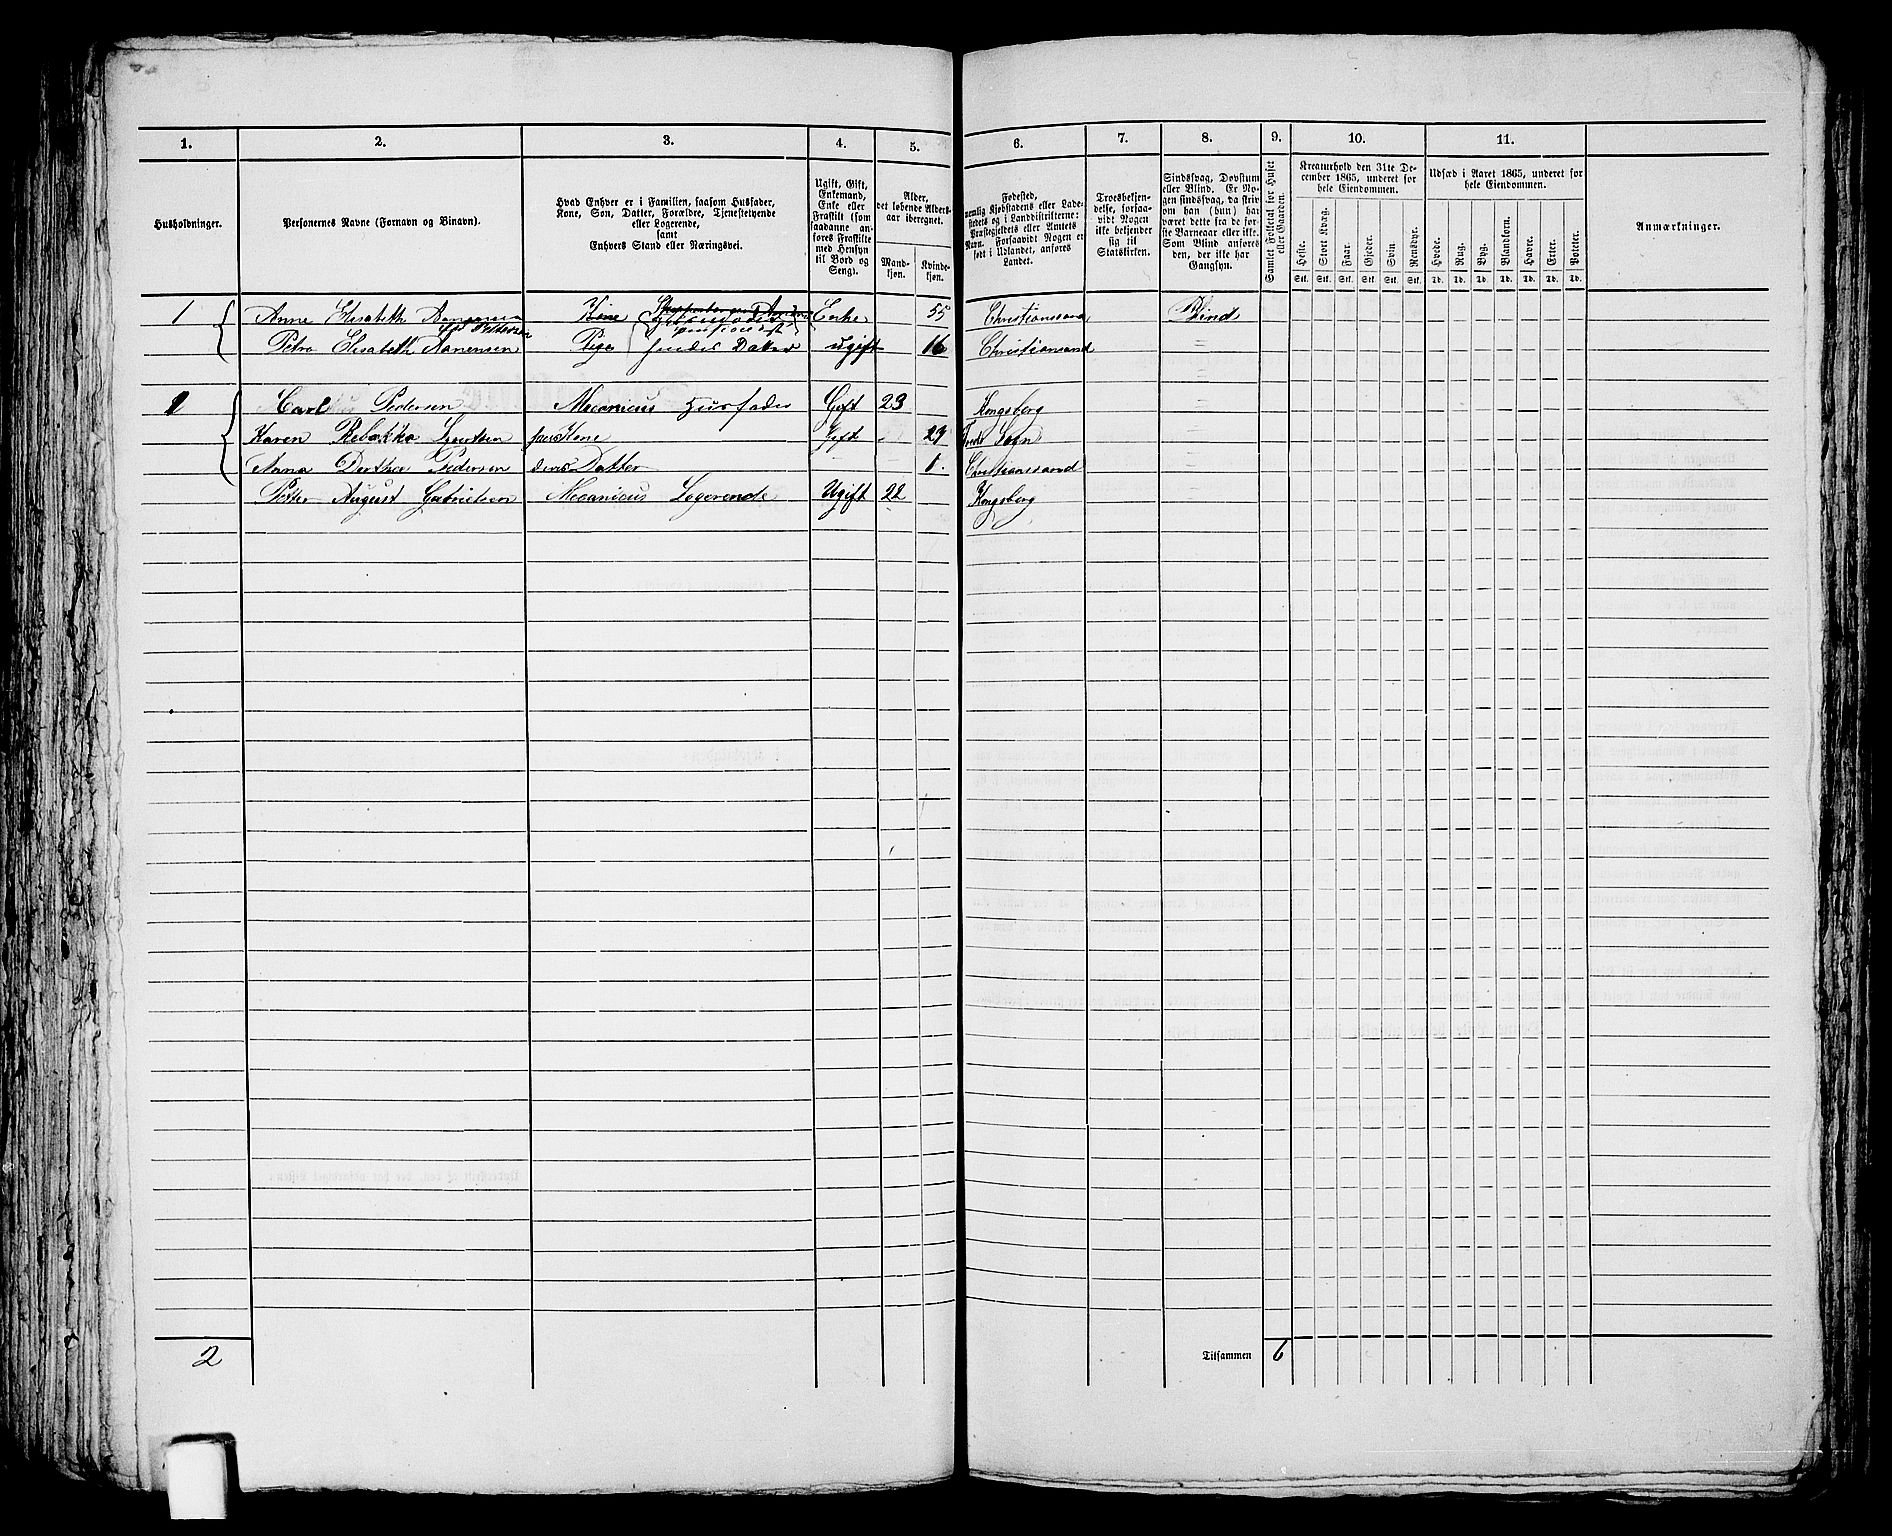 1. 2. 3. 4. 5. 6. 7. 8. 9. 10. 11.
Husholdninger.
Personernes Navne (Fornavn og Binavn).
Hvad Enhver er i Familien, saasom Husfader,
Kone, Søn, Datter, Forældre, Tjenestetyende
eller Logerende,
samt
Enhvers Stand eller Næringsvei.
Ugift, Gift,
Enkemand,
Enke eller
Fraskilt (som
saadanne an-
føres Fraskilte
med Hensyn
til Bord og
Seng).
Alder,
det løbende Alders-
aar iberegnet.
Mand-
kjøn.
Kvinde-
kjøn.
Fødested,
nemlig Kjøbstadens eller Lade-
stedets og i Landdistrikterne:
Præstegjeldets eller Amtets
Navn. Forsaavidt Nogen er
født i Udlandet, anføres
Landet.
Troesbekjen-
delse, forsaa-
vidt Nogen
ikke bekjender
sig til
Statskirken.
Sindssvag, Døvstum
eller Blind. Er No-
gen sindssvag, da skriv
om han (hun) har
været dette fra de før-
ste Barneaar eller ikke.
Som Blind anføres
den, der ikke har
Gangsyn.
Samlet Folketal for Huset
eller Gaarden.
Kreaturhold den 31te De-
cember 1865, underet for
hele Eiendommen.
Heste. Stort Kvæg. Faar. Gjeder. Svin Rensdyr.
Stk. Stk. Stk. Stk. Stk. Stk.
Udsæd i Aaret 1865, underet for
hele Eiendommen.
Hvede. Rug. Byg. Blandkorn. Havre. Erter. Poteter.
Td. Td. Td. Td. Td. Td. Td.
Anmærkninger.
1 Anne Elisabeth Enke 55 Christianssand Blind
Petra Elisabeth Aanensen Pige hendes Datter ugift 16 Christiansand
1 Carl Pedersen Mecanicus Husfader Gift 23 Kongsberg
Karen Rebekka Kone Gift 29
Anna Dorthea Pedersen deres Datter 1. Christianssand
Petter August Gabrielsen Mecanicus Logerende Ugift 22 Kongsberg
2 Tilsammen 6